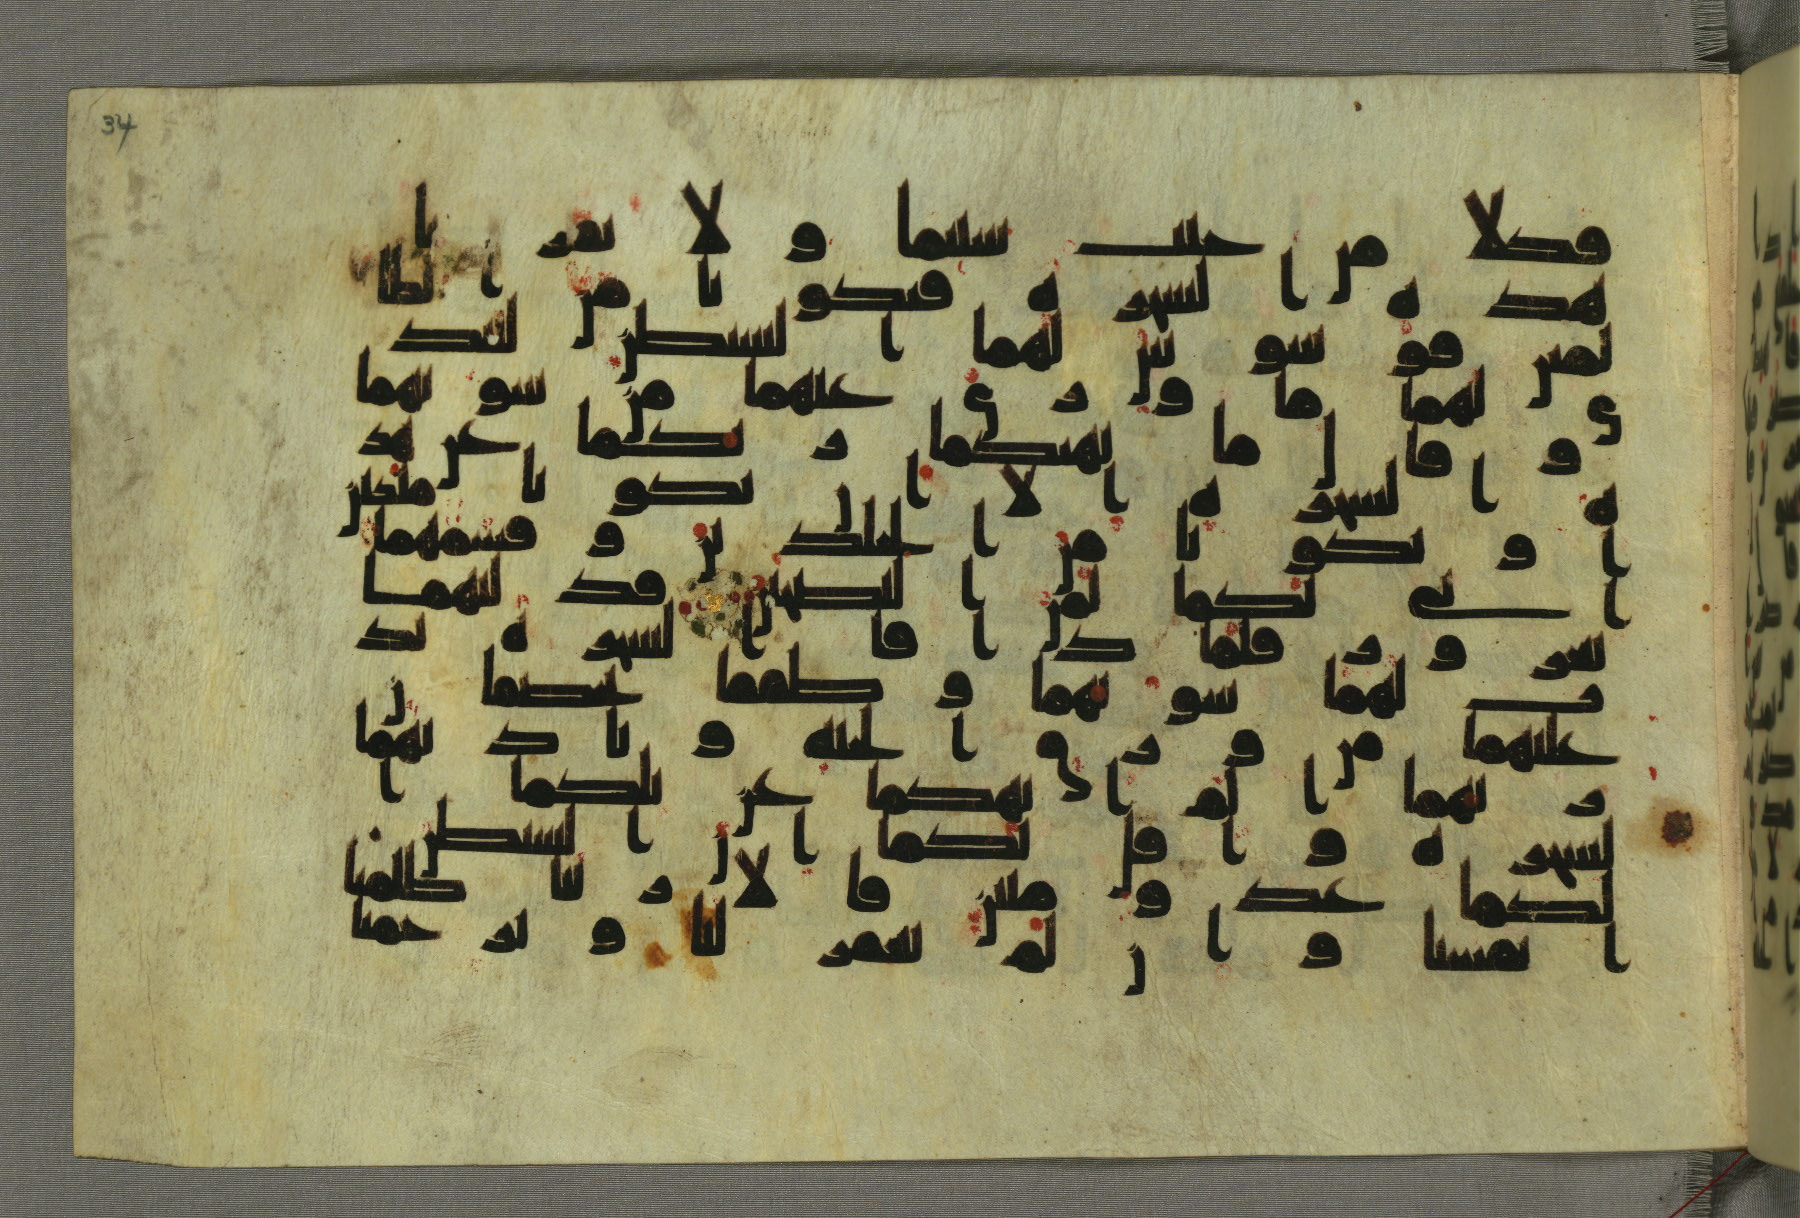 34
فكلا من حيث شئتما ولا تقربا
هذه الشجرة فتكونا من الظا
لمين فوسوس لهما الشيطن ليبد
ي لهما ما وري عنهما من سوتهما
وقال ما نهيكما ربكما عن هذ
ه الشجرة الا ان تكونا ملكين
او تكونا من الخلدين وقسمهما
اني لكما لمن النصحين فدليهما
بغرور فلما ذاقا الشجرة بد
ت لهما سوتهما وطفقا يخصفا
ن عليهما من ورق الجنة وناديهما
ربهما الم انهكما عن تلكما ا
لشجرة واقل لكما ان الشيطن
لكما عدو مبين قالا ربنا ظلمنا
انفسنا وان لم تغفر لنا وترحمنا